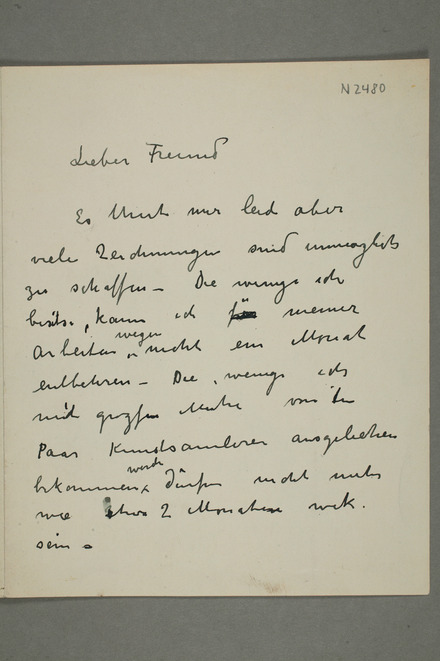 N2480
Lieber Freund
Es thut mir leid aber
viele Zeichnungen sind unmöglich
zu schaffen – Die wenige ich
besitze, kann ich meiner
wegen
Arbeiten nicht ein Monat
entbehren – Die wenige ich
mit großen Mühe von
Paar Kunstsamlerer ausgeliehen
werde
bekommen dürfen nicht mehr
wie etwa 2 Monaten wek.
sein –